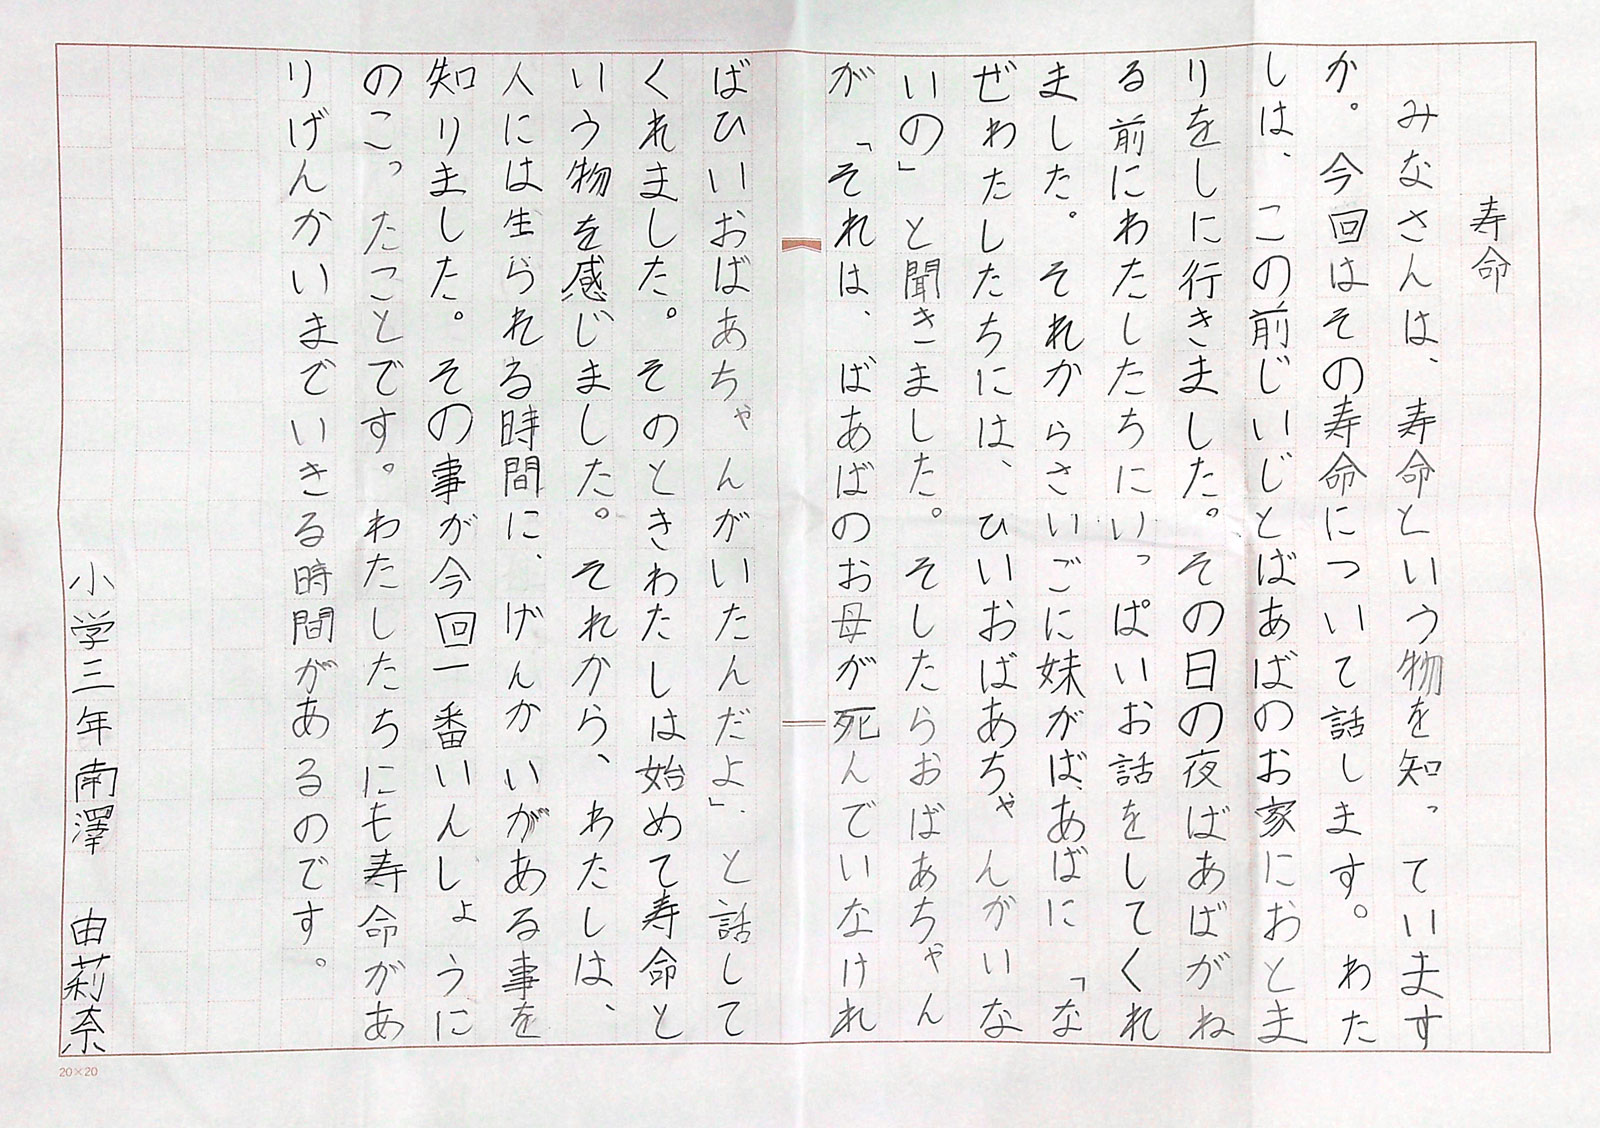 寿命
みなさんは、寿命という物を知っています
か。今回はその寿命について話します。わた
しは、この前じいじとばあばのお家におとま
りをしに行きました。その日の夜ばあばがね
る前にわたしたちにいっぱいお話をしてくれ
ました。それからさいごに妹がばあばに「な
ぜわたしたちには、ひいおばあちゃんがいな
いの」と聞きました。そしたらおばあちゃん
が「それは、ばあばのお母が死んでいなけれ
ばひいおばあちゃんがいたんだよ」と話して
くれました。そのときわたしは始めて寿命と
いう物を感じました。それから、わたしは、
人には生られる時間に、げんかいがある事を
知りました。その事が今回一番いんしょうに
のこったことです。わたしたちにも寿命があ
りげんかいまでいきる時間があるのです。
小学三年南澤　由莉奈
20×20